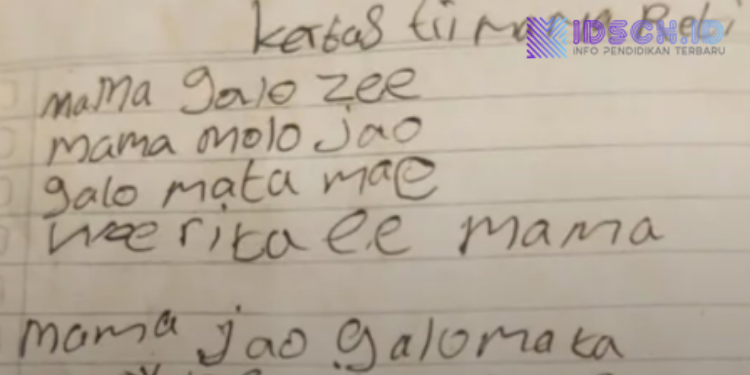 kertas tii mama Reti
IDSCH.ID
INFO PENDIDIKAN TERBARU
mama galo zee
mama molo jao
galo mata mae
woe rita ee mama
mama jao galo mata